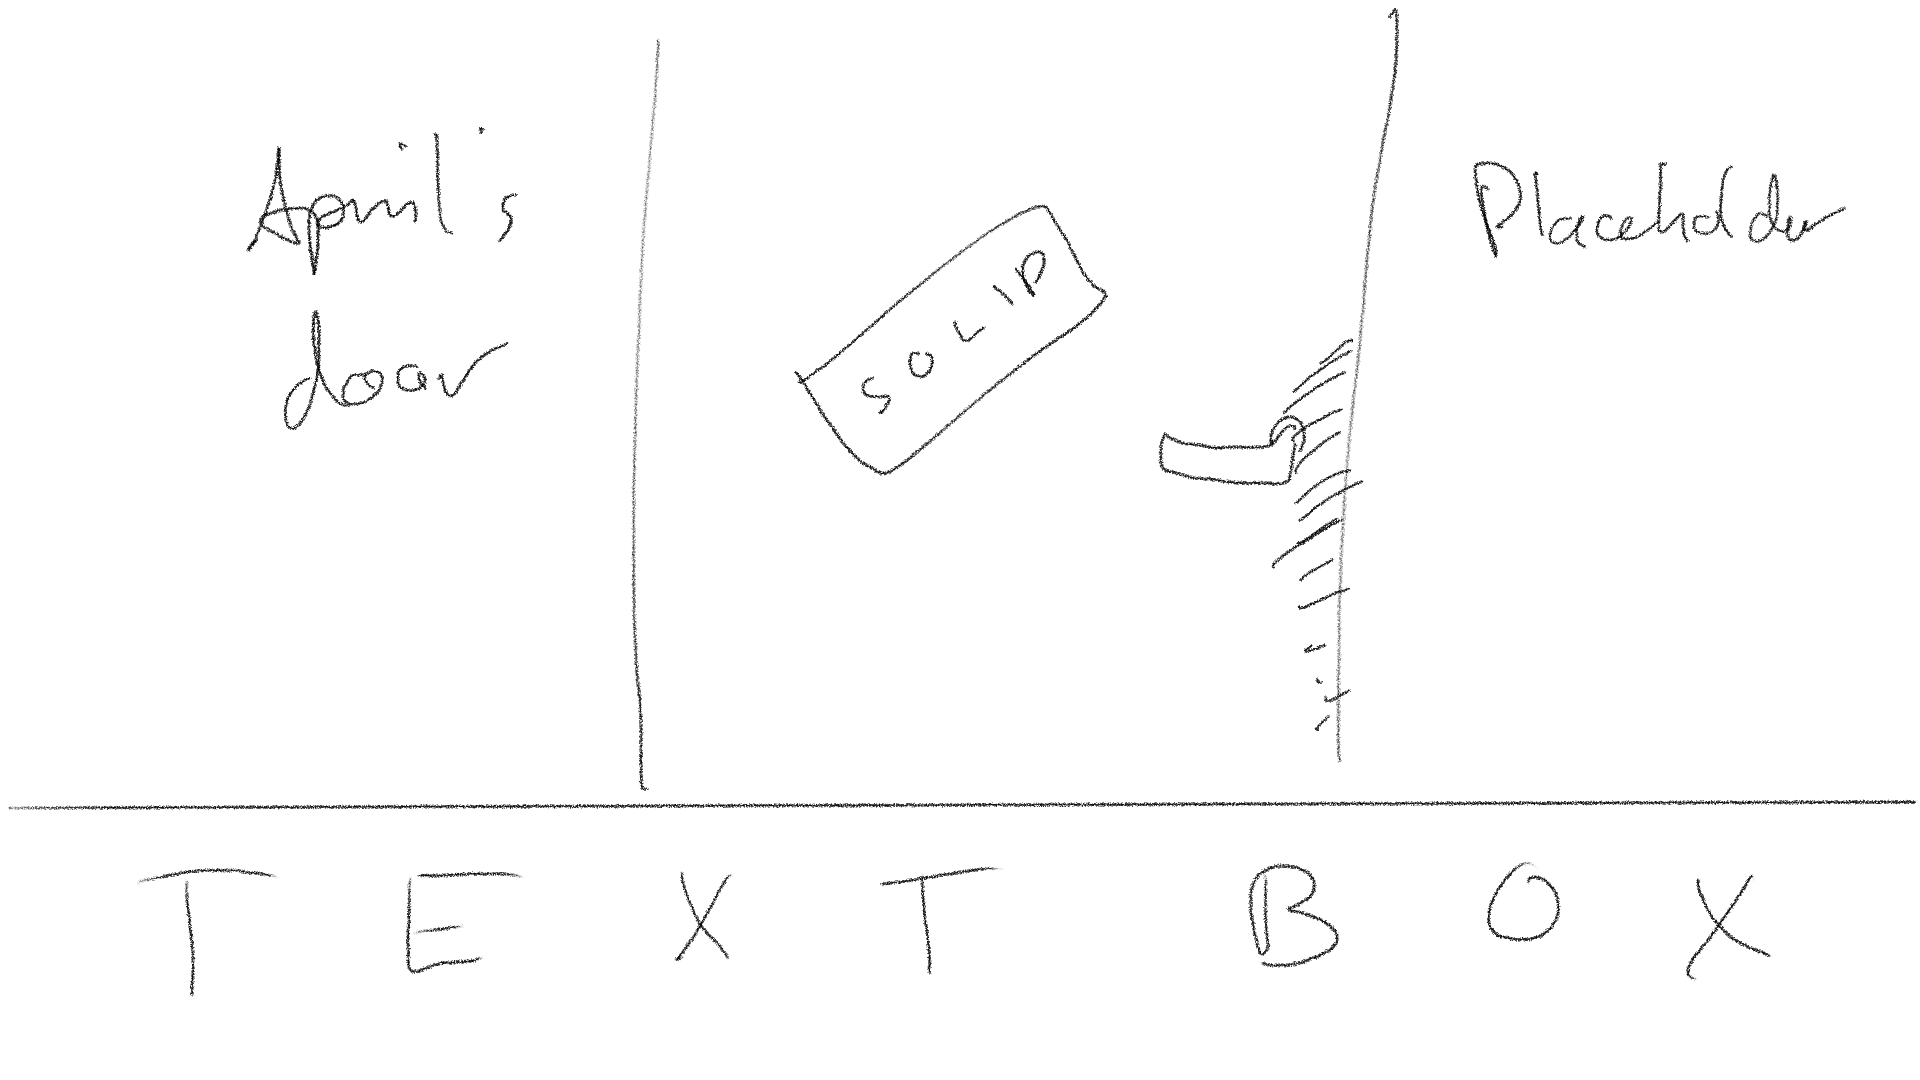 April's
door
SOLID
Placeholder
TEXT BOX